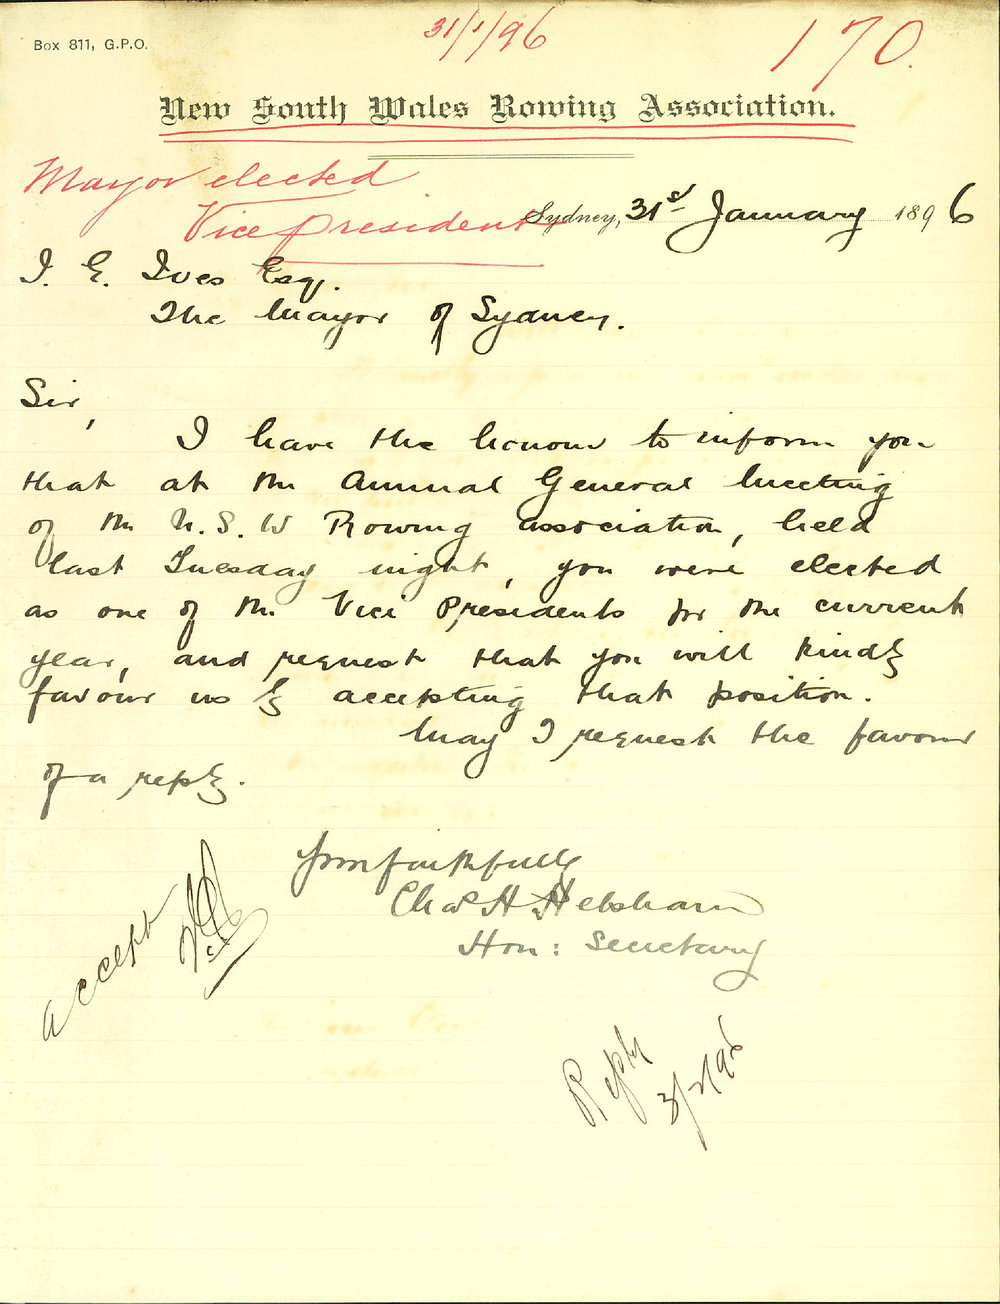 Box 811, G.P.O.
31/1/96
170.
New South Wales Rowing Association.
Mayor elected
Vice president
Sydney, 31st January 1896
I. E. Ives Esq.
The Mayor of Sydney.
Sir,
I have the honour to inform you
that at the Annual General Meeting
of the N.S.W Rowing association, held
last Tuesday night, you were elected
as one of the Vice Presidents for the current
year, and request that you will kindly
favour us by accepting that position.
May I request the favour
of a reply.
Yours faithfully
Chas H. Helsham
Hon: Secretary
accept
Reply
3/2/96